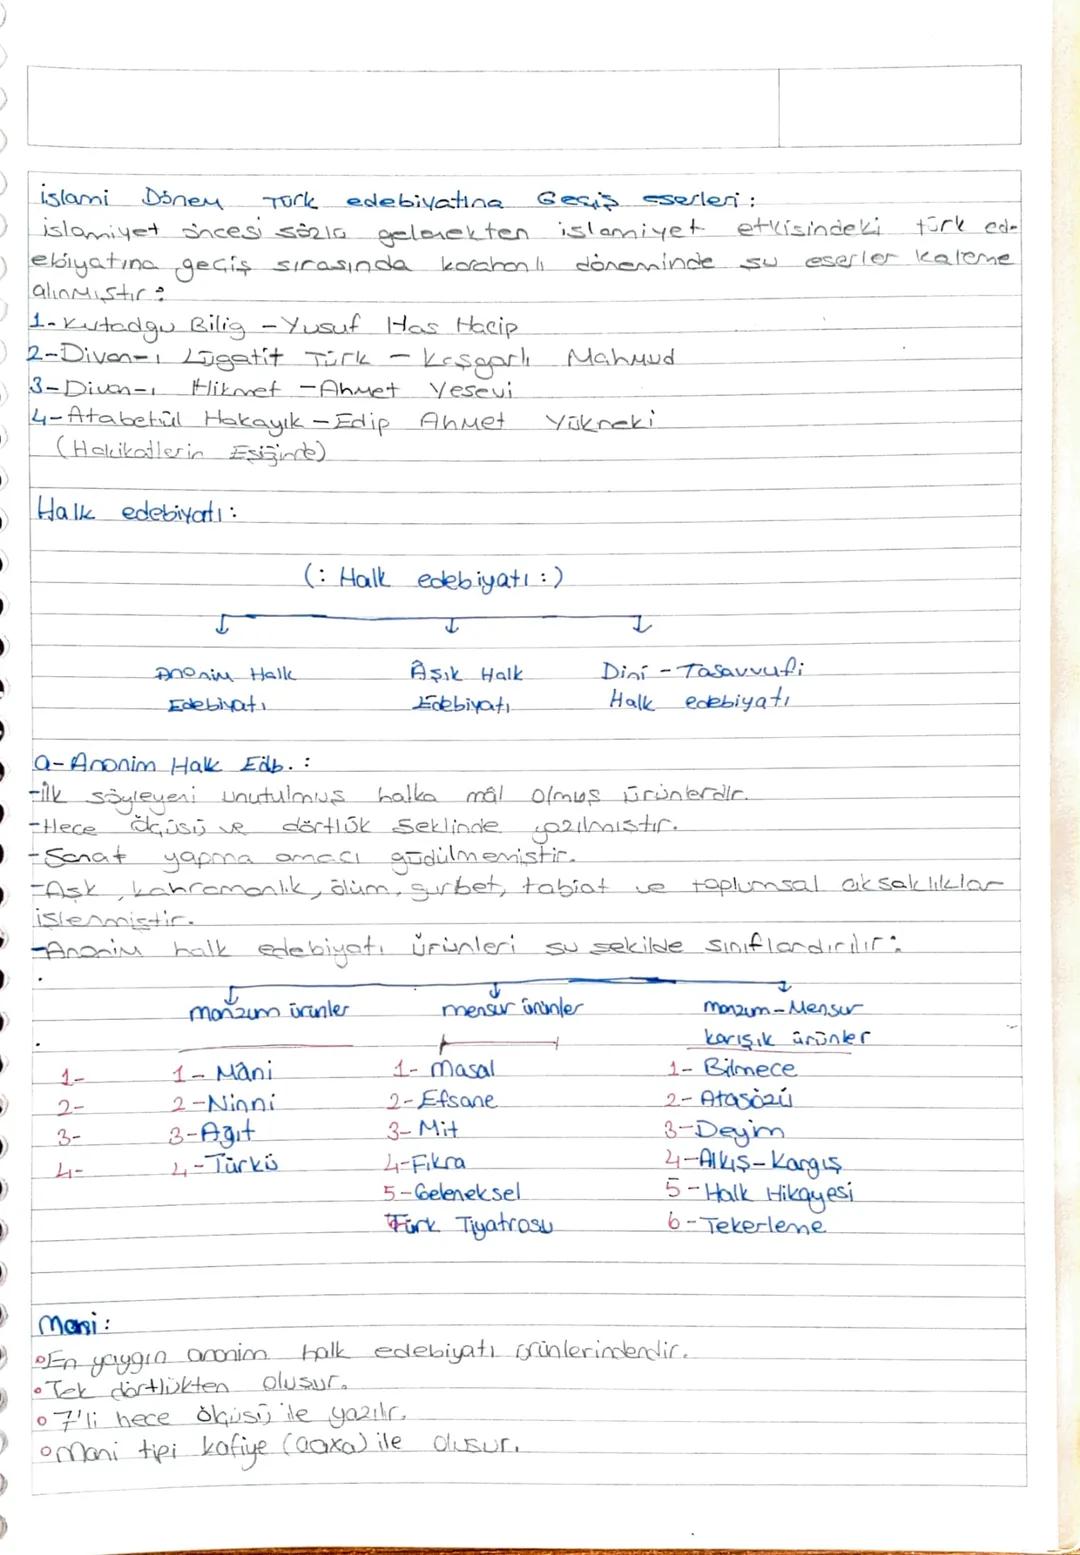 islami Dönem Türk edebiyatına Geçiş eserleri:
islamiyet öncesi sözlü gelenekten islamiyet etkisindeki türk ed-
ebiyatına geçiş sırasında karahanlı döneminde şu eserler kaleme
alınmıştır:
1-Kutadgu Bilig - Yusuf Has Hacip
2-Divan-ı Lügatit Türk - Kaşgarlı Mahmud
3-Divan-ı Hikmet - Ahmet Yesevi
4-Atabetül Hakayık - Edip Ahmet Yükneki
(Hakikatlerin Eşiğinde)
Halk edebiyatı:
(: Halk edebiyatı :)
Anonim Halk Âşık Halk Dini - Tasavvufi
Edebiyatı Edebiyatı Halk edebiyatı
a-Anonim Halk Edb. :
-İlk söyleyeni unutulmuş halka mâl olmuş ürünlerdir.
-Hece ölçüsü ve dörtlük şeklinde yazılmıştır.
-Sanat yapma amacı güdülmemiştir.
-Aşk, kahramanlık, ölüm, gurbet, tabiat ve toplumsal aksaklıklar
işlenmiştir.
-Anonim halk edebiyatı ürünleri şu şekilde sınıflandırılır:
manzum ürünler mensur ürünler manzum-Mensur
karışık ürünler
1- 1- Mâni 1- Masal 1- Bilmece
2- 2-Ninni 2-Efsane 2- Atasözü
3- 3-Ağıt 3- Mit 3-Deyim
4- 4-Türkü 4-Fıkra 4-Alkış-Kargış
5-Geleneksel 5-Halk Hikayesi
Türk Tiyatrosu 6-Tekerleme
Mani:
•En yaygın anonim halk edebiyatı ürünlerindendir.
•Tek dörtlükten oluşur.
•7'li hece ölçüsü ile yazılır.
•Mani tipi kafiye (aaxa) ile oluşur.